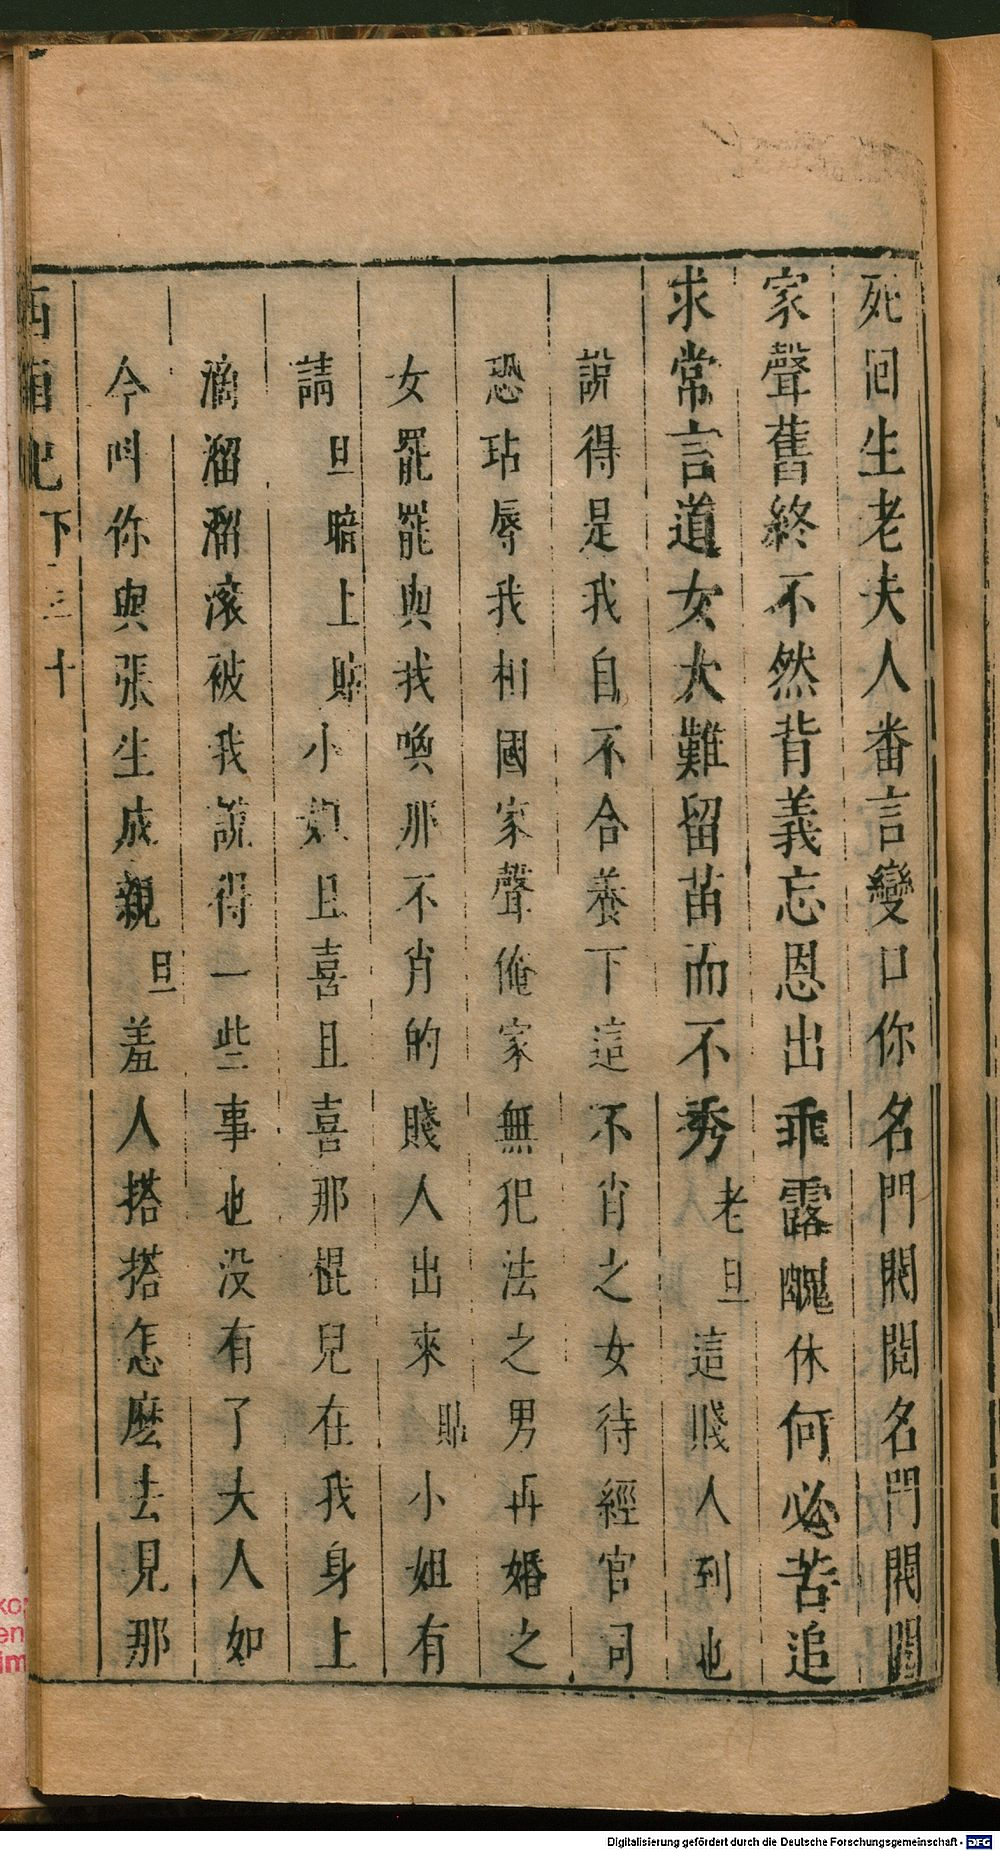 死回生老夫人番言變口你名門閥閱名門閥閱
家聲舊終不然背義忘恩出乖露醜休何必苦追
求常言道女大難留苗而不秀老旦這賤人到也
說得是我自不合養下這不肖之女待經官司
恐玷辱我相國家聲俺家無犯法之男再婚之
女罷罷與我喚那不肖的賤人出來貼小姐有
請旦暗上貼小姐且喜且喜那棍兒在我身上
滴溜溜滾被我說得一些事也没有了夫人如
今呌你與張生成親旦羞人搭搭怎麽去見那
西廂記下三十
Digitalisierung gefördert durch die Deutsche Forschungsgemeinschaft - DFG